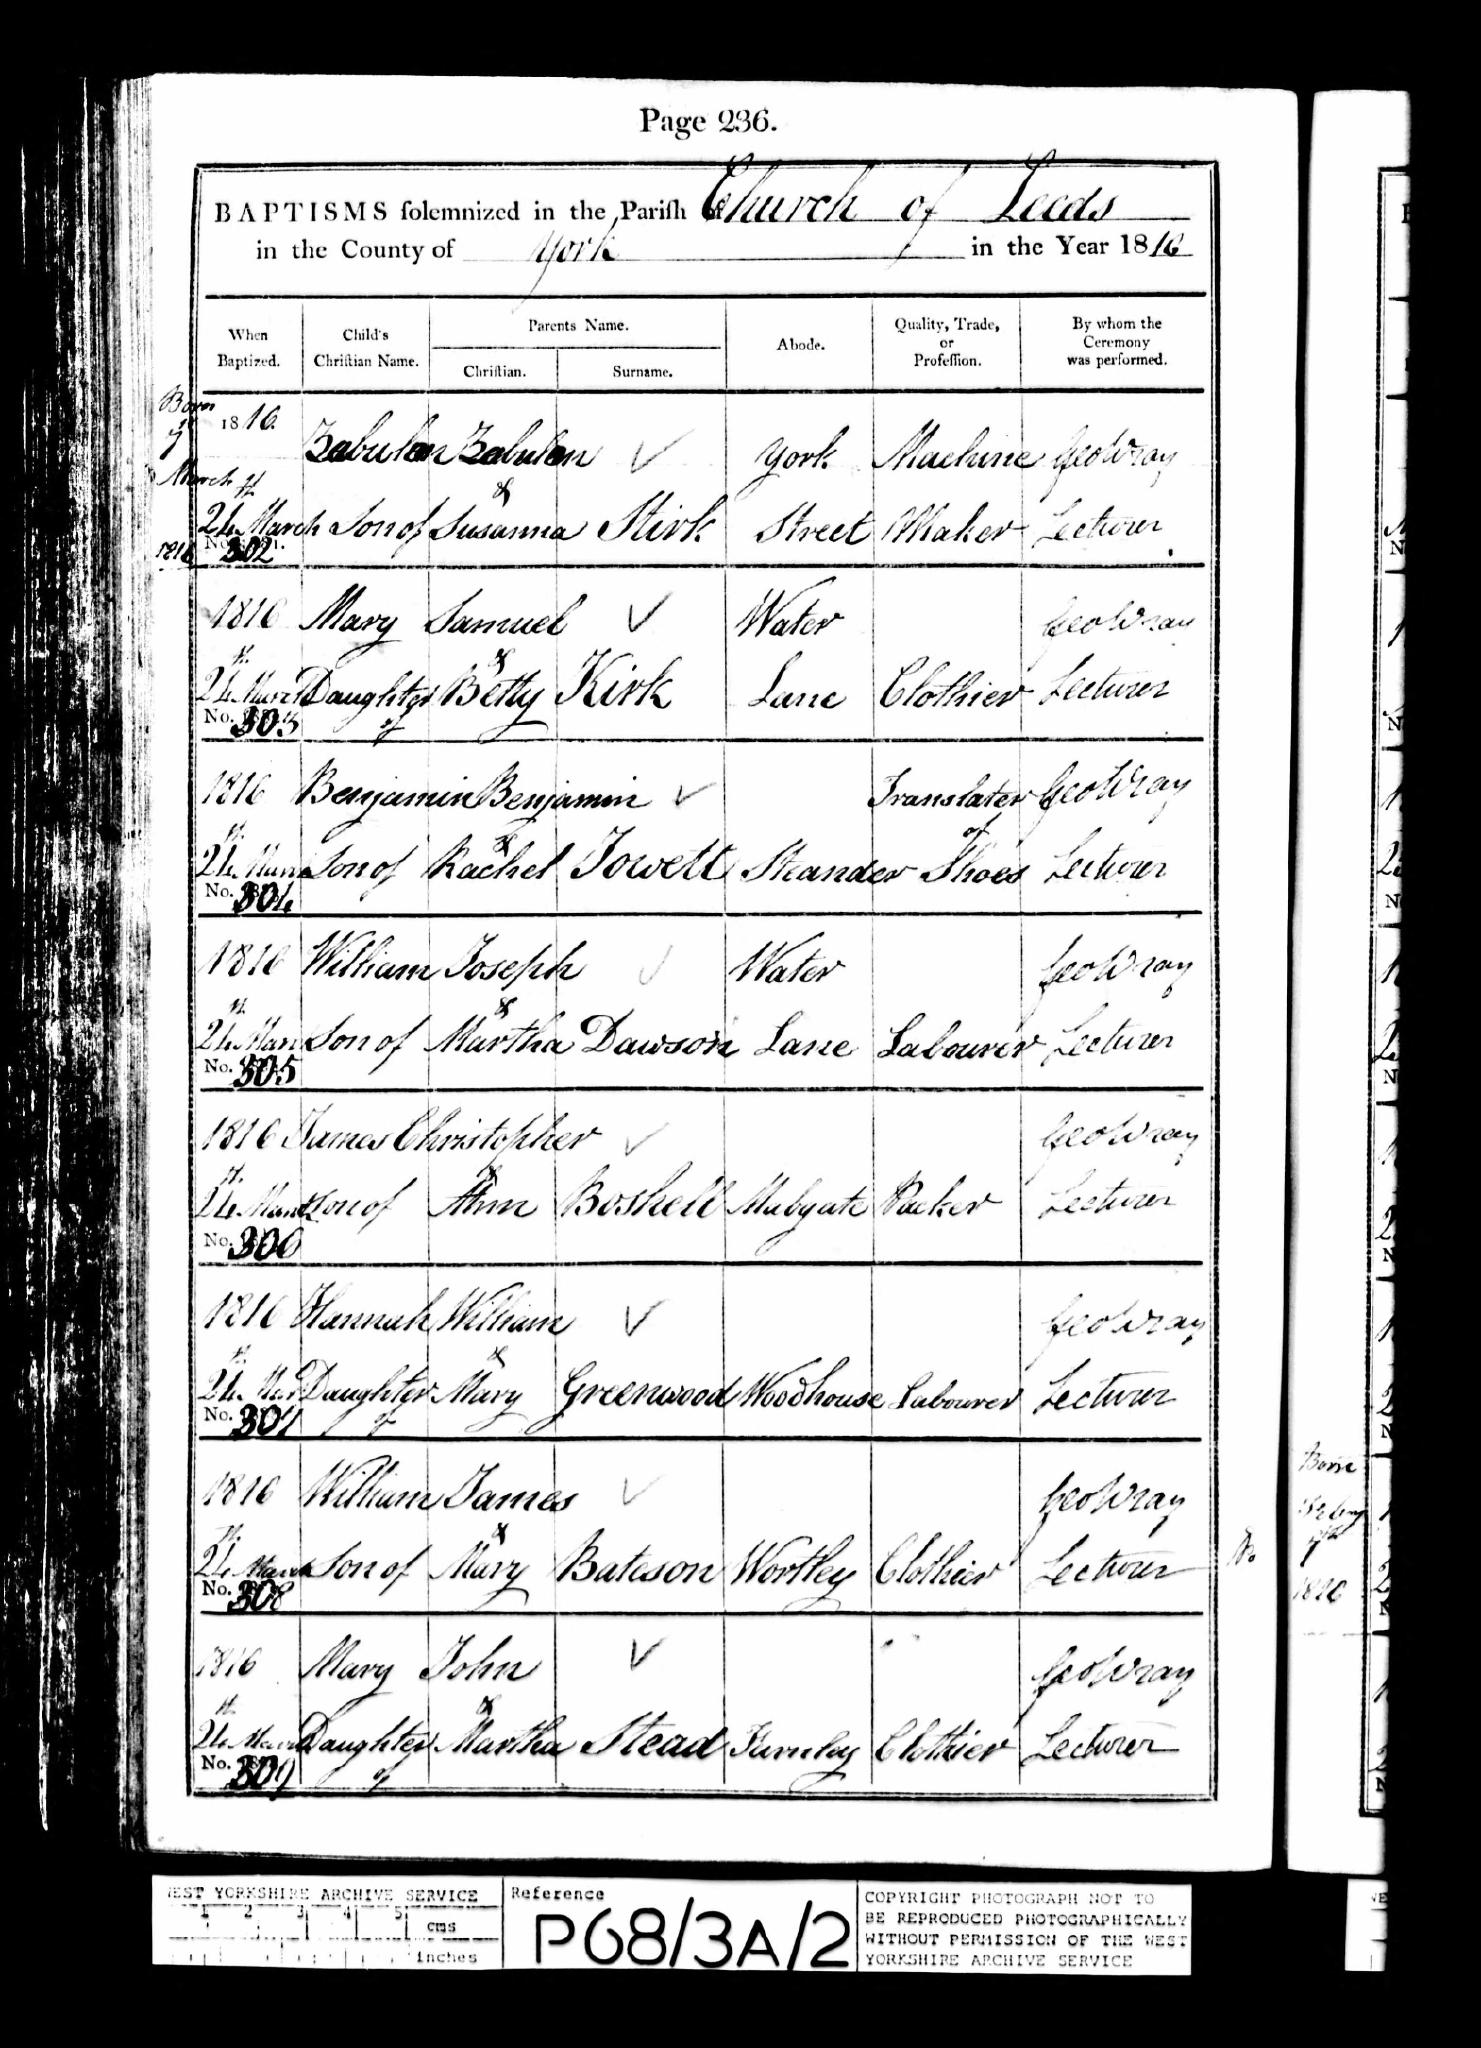 Page 236.
BAPTISMS solemnized in the Parish of Church of Leeds
in the County of York in the Year 1816
When Baptized. Child's Christian Name. Parents Name. Christian. Surname. Abode. Quality, Trade, or Profession. By whom the Ceremony was performed.
Born
7
March
1816
1816. Zebulon Zebulon York Machine Geo Wray
&
24th March Son of Susanna Stirk Street Maker Lecturer
No. 302
1816 Mary Samuel Water Geo Wray
&
24th March Daughter of Betty Kirk Lane Clothier Lecturer
No. 303
1816 Benjamin Benjamin Translater Geo Wray
& of
24th March Son of Rachel Jowett Steander Shoes Lecturer
No. 304
1816 William Joseph Water Geo Wray
&
24th Mar Son of Martha Dawson Lane Labourer Lecturer
No. 305
1816 James Christopher Geo Wray
&
24th March Son of Ann Boshell Mabgate Packer Lecturer
No. 306
1816 Hannah William Geo Wray
&
24th Mar Daughter of Mary Greenwood Woodhouse Labourer Lecturer
No. 307
1816 William James Geo Wray
&
24th March Son of Mary Bateson Wortley Clothier Lecturer
No. 308
1816 Mary John Geo Wray
&
24th March Daughter of Martha Stead Farnley Clothier Lecturer
No. 309
Born
7th
1816
WEST YORKSHIRE ARCHIVE SERVICE
1 2 3 4 5
cms
inches
Reference
P68/3A/2
COPYRIGHT PHOTOGRAPH NOT TO
BE REPRODUCED PHOTOGRAPHICALLY
WITHOUT PERMISSION OF THE WEST
YORKSHIRE ARCHIVE SERVICE